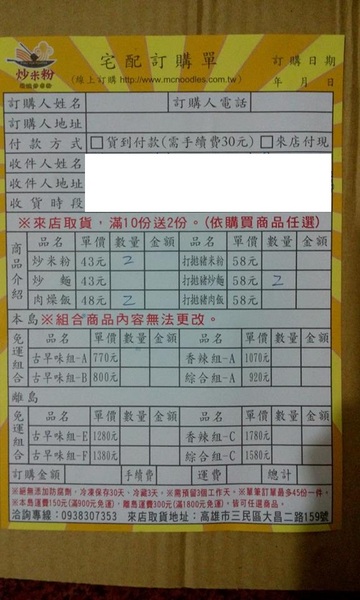 炒米粉
宅配訂購單
訂購日期
(線上訂購 http://www.mcnoodles.com.tw)
年 月 日
訂購人姓名 訂購人電話
訂購人地址
付款方式 □貨到付款(需手續費30元) □來店付現
收件人姓名
收件人地址
收貨時段
※來店取貨，滿10份送2份。(依購買商品任選)
商品介紹
品名 單價 數量 金額 品名 單價 數量 金額
炒米粉 43元 2 打拋豬米粉 58元
炒麵 43元 打拋豬炒麵 58元 2
肉燥飯 48元 2 打拋豬肉飯 58元
本島※組合商品內容無法更改。
免運組合
品名 單價 數量 金額 品名 單價 數量 金額
古早味組-A 770元 香辣組-A 1070元
古早味組-B 800元 綜合組-A 920元
離島
免運組合
品名 單價 數量 金額 品名 單價 數量 金額
古早味組-E 1280元 香辣組-C 1780元
古早味組-F 1380元 綜合組-C 1580元
訂購金額 手續費 運費 總計
※嚴無添加防腐劑，冷凍保存30天、冷藏3天。※需預留3個工作天。※單筆訂單最多45份一件。
※本島運費150元(滿900元免運)，離島運費300元(滿1800元免運)。皆可任選搭配
洽詢專線：0938307353 來店取貨地址：高雄市三民區大昌二路159號